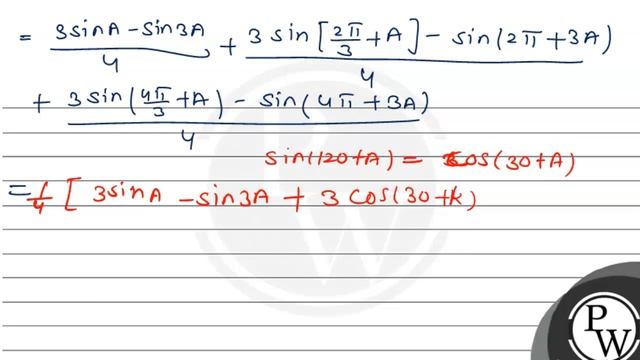 = 3sinA - sin3A / 4 + 3 sin[2π/3 + A] - sin(2π + 3A) / 4
+ 3sin(4π/3 + A) - sin(4π + 3A) / 4
sin(120+A) = cos(30+A)
= 1/4 [ 3sinA - sin3A + 3 cos(30+A)
PW